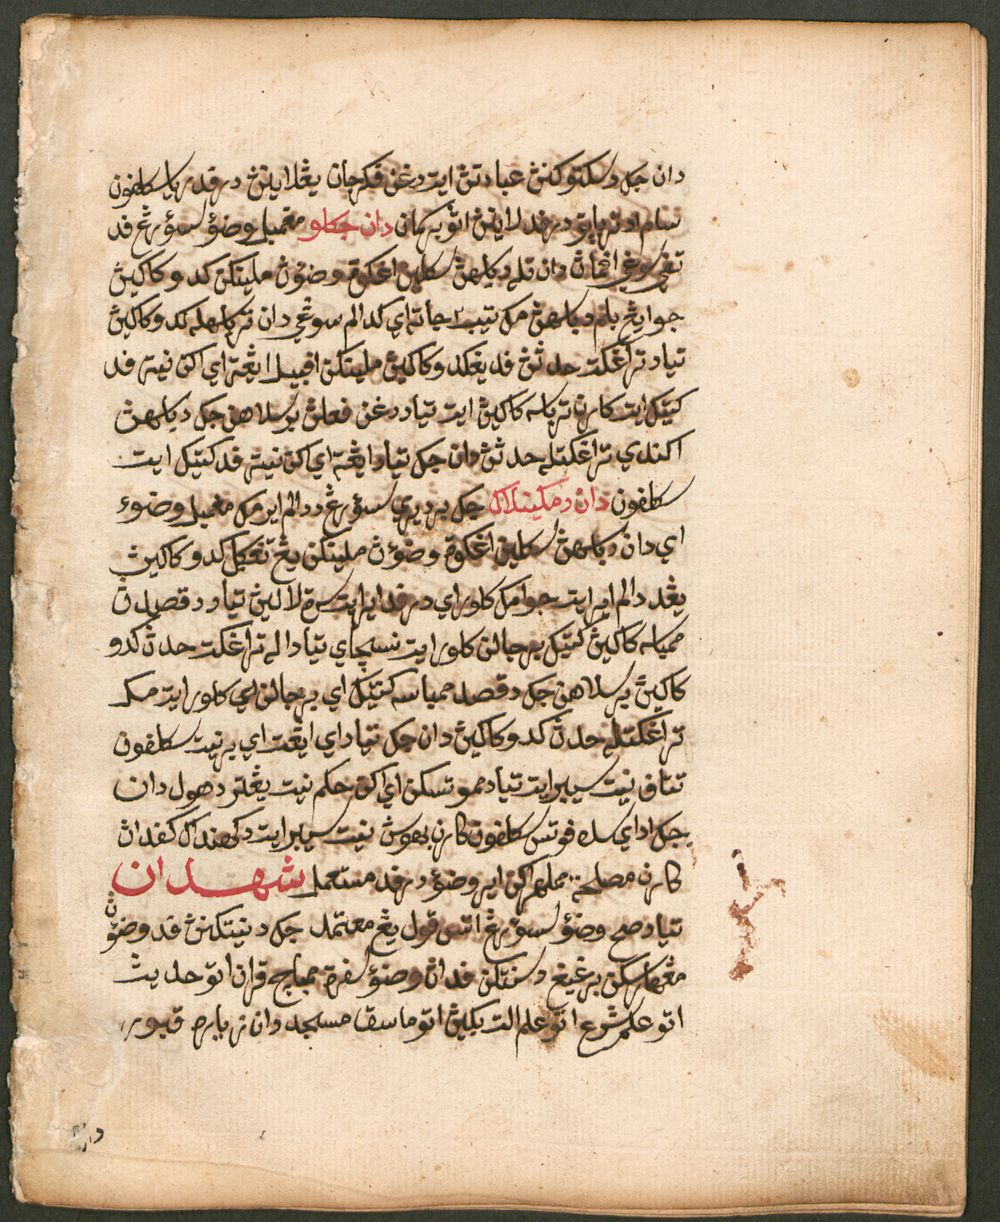 دان جک دسکتوکنڽ عبادتڽ ايت دڠن فکرجان يڠلاين درفد رياء سکلفون
سام اد ترهاتو درفد لاين اتو برکمان دان جکلو مڠمبل وضوء سؤرڠ فد
تفي سوڠي اڠکتن دان تله دباسهڽ سکلين اڠکوت وضوءن ملينکن کدو کاکيڽ
جوا يڠ بلم دباسهڽ مک تيب٢ جاته اي کدالم سوڠي دان ترباسهله کدو کاکيڽ
تياد تراڠکت حدثڽ فد يڠکدو کاکيڽ ملينکن افبيل ايڠة اي اکن نية فد
کتيک ايت کارن ترباسه کاکيڽ ايت تياد دڠن فعلڽ برسلاهن جک دباسهڽ
اکندي تراڠکتله حدثڽ دان جک تياد ايڠة اي اکن نية فد کتيک ايت
سکلفون دان دمکينلاݢ جک برديري سؤرڠ ددالم اير مک مڠمبل وضوء
اي دان دباسهڽ سکلين اڠکوت وضوءن ملينکن يڠ تڠݢل کدو کاکيڽ
يڠد دالم اير ايت جوا مک کلوراي درفد اير ايت سرت لالي تياد دقصدڽ
ممباسه کاکيڽ کتيک برجالن کلور ايت نسچاي تياداله تراڠکت حدث کدو
کاکيڽ برسلاهن جک دقصد ممباسه کتيک اي برجالن اي کلور ايت مک
تراڠکتله حدث کدو کاکيڽ دان جک تياد اي ايڠت اي برنيت سکلفون
تتاف نيت سمبرايت تياد مموتسکن اي اکن حکم نيت يڠتردهول دان
جک اداي سده فوتس سکلفون کارن بهوسڽ نيت سمبرايت دکهنداک کفداڽ
کارن مصلحة مملهراکن اير وضوء درفد مستعمل شهدان
تياد صح وضوء سؤرڠ اتس قول يڠ معتمد جک دنيتکنڽ فد وضوءڽ
مڠهارسکن برڠيڠ دسنتکن فداڽ وضوء سفرت ممباچ قران اتو حديث
اتو علم شرع اتو علم الت بکيڽ اتو ماسق مسجد دان زيارة قبور
دان